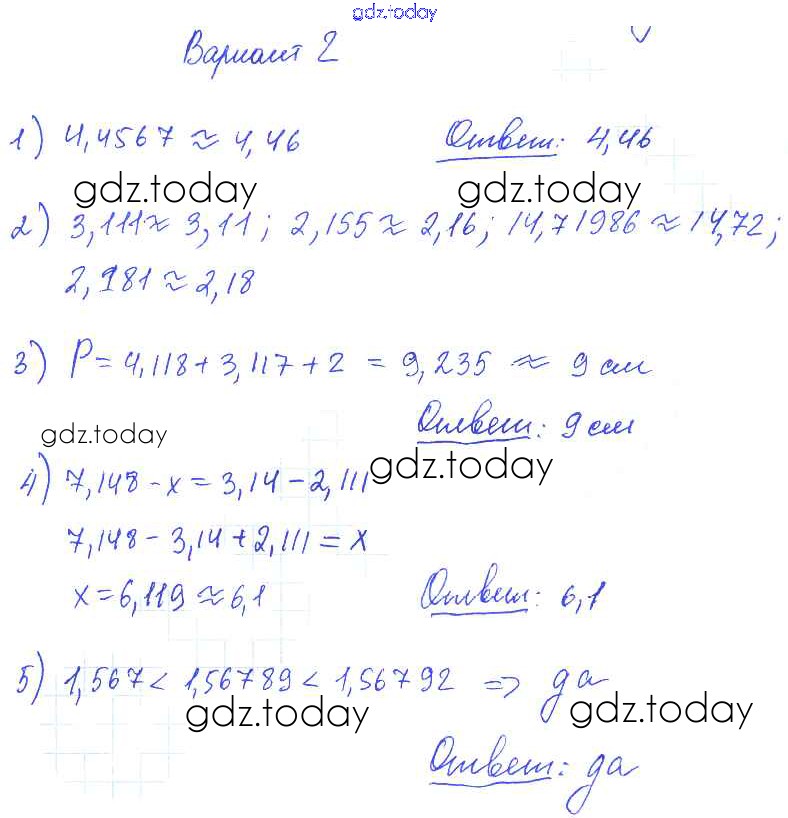 gdz.today
Вариант 2
1) 4,4567 ≈ 4,46 Ответ: 4,46
gdz.today gdz.today
2) 3,111 ≈ 3,11; 2,155 ≈ 2,16; 14,71986 ≈ 14,72;
2,181 ≈ 2,18
3) P = 4,118 + 3,117 + 2 = 9,235 ≈ 9 см
Ответ: 9 см
gdz.today
4) 7,148 - x = 3,14 - 2,111
gdz.today
7,148 - 3,14 + 2,111 = x
x = 6,119 ≈ 6,1 Ответ: 6,1
5) 1,567 < 1,56789 < 1,56792 => да
gdz.today gdz.today
Ответ: да